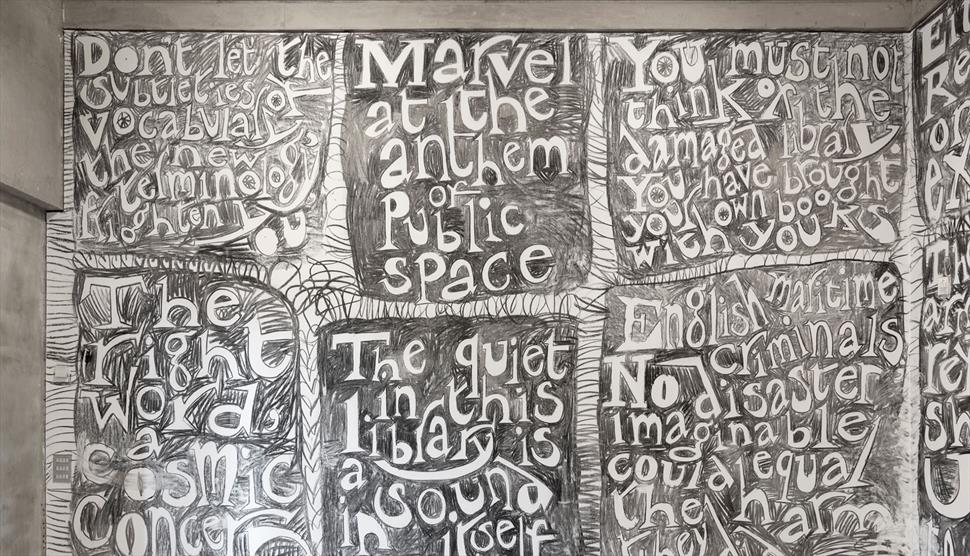 Don't let the
Subtleties of
Vocabulary
the new
terminology
frighten you
Marvel
at the
anthem
of
Public
space
You must not
think of the
damaged library
You have brought
your own books
with you
The
right
word,
a
cosmic
The quiet
in this
library is
a sound
in itself
English maritime
criminals
No disaster
imaginable
could equal
the harm
they